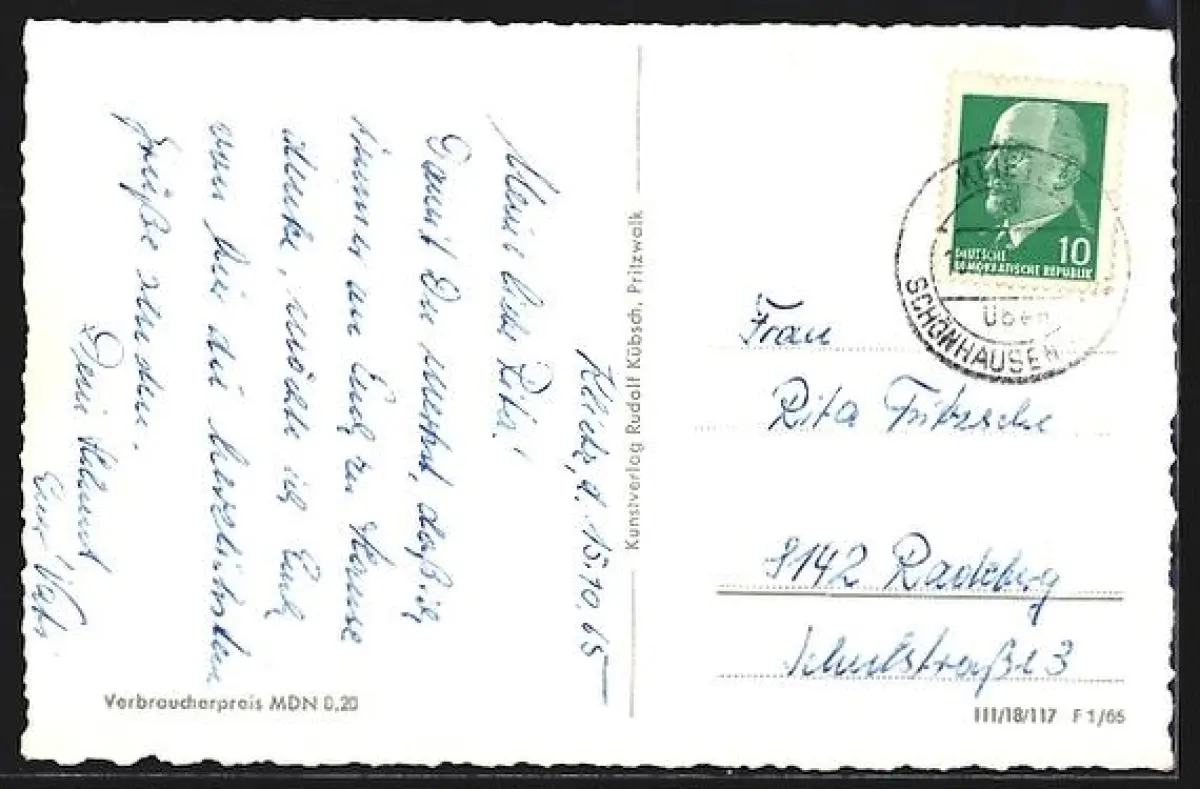 Klietz, d. 15.10.65
Meine liebe Rita!
Damit Du merkst, daß ich
immer an Euch zu Hause
denke, möchte ich Euch
von hier die herzlichsten
Grüße senden.
Dein Helmut
Euer Vati
Verbraucherpreis MDN 0,20
Kunstverlag Rudolf Kübsch, Pritzwalk
DEUTSCHE
DEMOKRATISCHE REPUBLIK
10
KLIETZ
über
SCHÖNHAUSEN
Frau
Rita Fritzsche
8142 Radeberg
Schulstraße 3
III/18/117 F 1/65